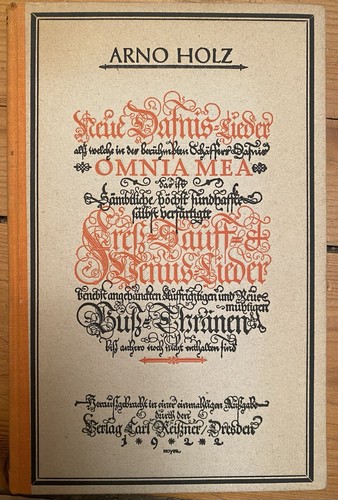 ARNO HOLZ
Neüe Dafnis-Lieder
alß welche in des berühmbten Schäffers Dafnis
OMNIA MEA
das ist
Sämbtliche höchst sündhaffte
selbst verfärtigte
Freß-Sauff-&
Venus-Lieder
benebst angehänckten Auffrichtigen und Reue
mühtigen
Buß-Thränen
biß anhero noch nicht enthalten sind
Herausgebracht in einer einmahligen Außgabe
durch den
Verlag Carl Reißner, Dresden
1922